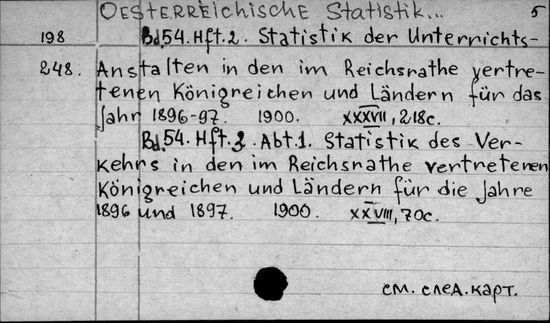 OESTERREichische Statistik... 5
198 Bd.54. Hft.2. Statistik der Unterrichts-
248. Anstalten in den im Reichsrathe vertre-
tenen Königreichen und Ländern für das
Jahr 1896-97. 1900. XXXVII, 218c.
Bd.54. Hft.3. Abt.1. Statistik des Ver-
kehrs in den im Reichsrathe vertretenen
Königreichen und Ländern für die Jahre
1896 und 1897. 1900. XXVIII, 70c.
см. след. карт.